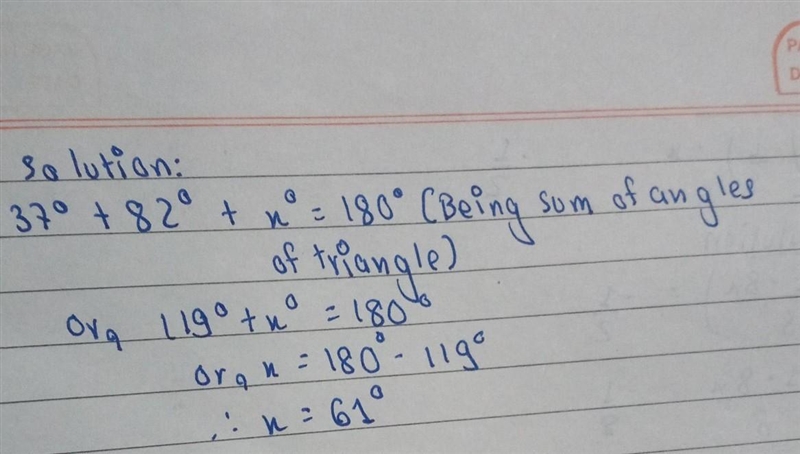 Solution:
37° + 82° + x° = 180° (Being sum of angles
of triangle)
Or, 119° + x° = 180°
or, x = 180° - 119°
∴ x = 61°